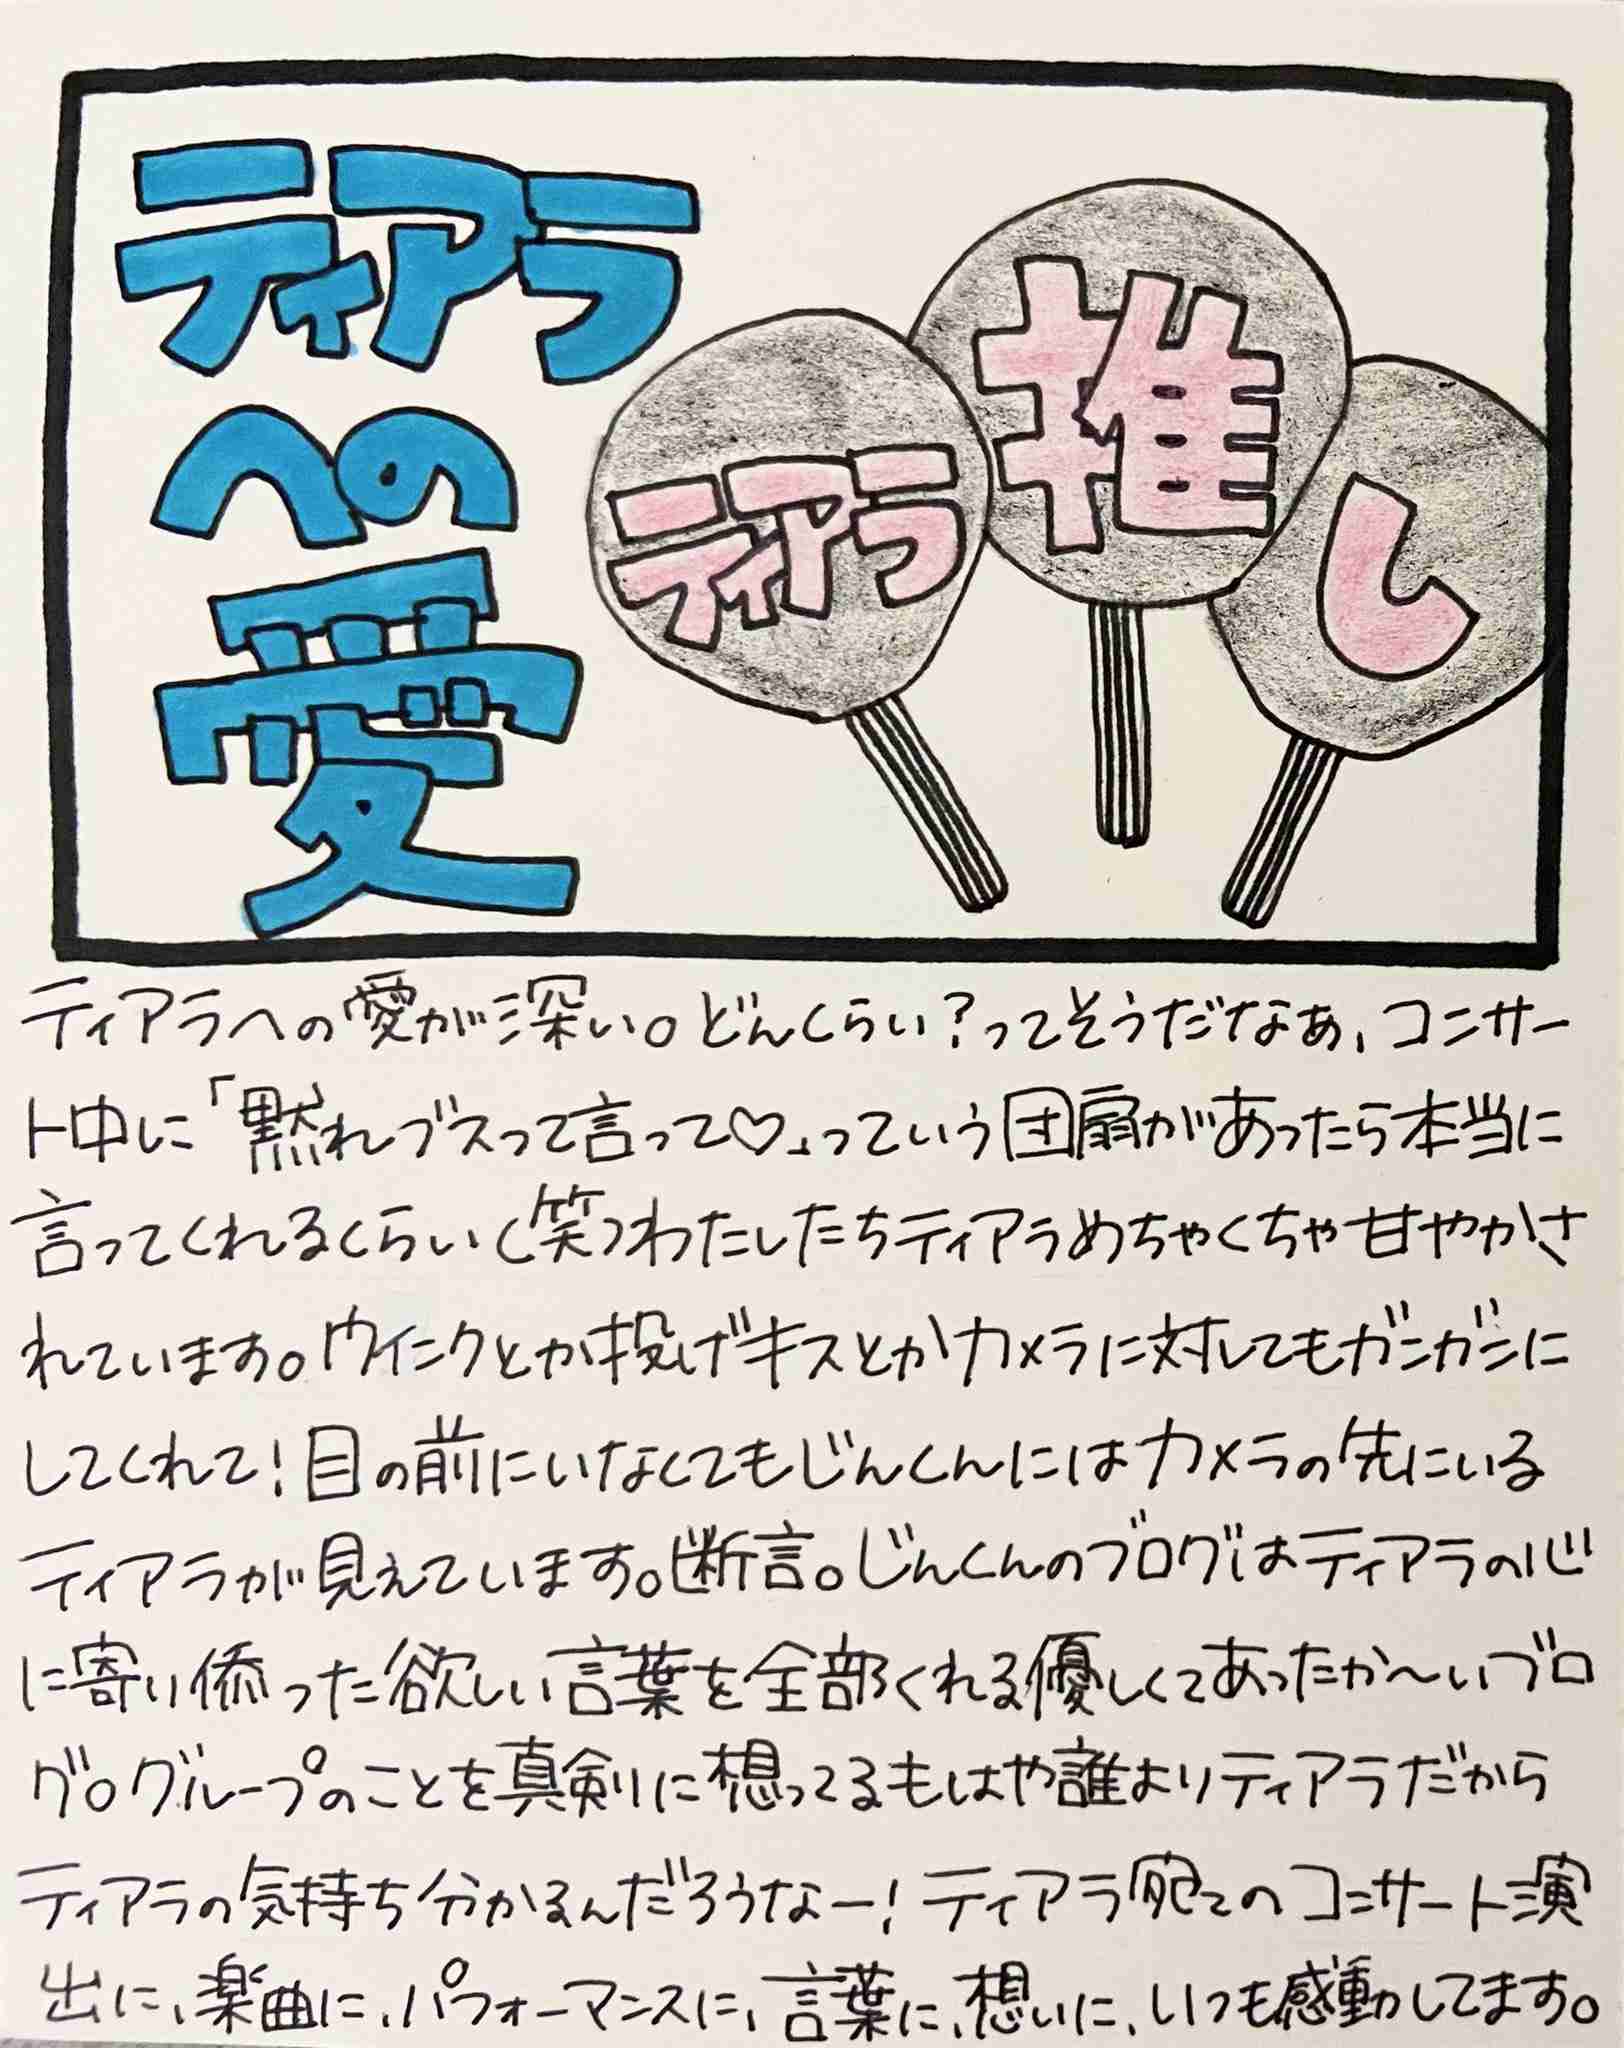 ティアラ
への
愛
ティアラ
推
し
ティアラへの愛が深い。どんくらい?ってそうだなぁ、コンサー
ト中に「黙れブスって言って♡」っていう団扇があったら本当に
言ってくれるくらい(笑)わたしたちティアラめちゃくちゃ甘やかさ
れています。ウインクとか投げキスとかカメラに対してもガンガンに
してくれて!目の前にいなくてもじんくんにはカメラの先にいる
ティアラが見えています。断言。じんくんのブログはティアラの心
に寄り添った欲しい言葉を全部くれる優しくてあったか〜いブロ
グ。グループのことを真剣に想ってるもはや誰よりティアラだから
ティアラの気持ち分かるんだろうなー!ティアラ宛てのコンサート演
出に、楽曲に、パフォーマンスに、言葉に、想いに、いつも感動してます。